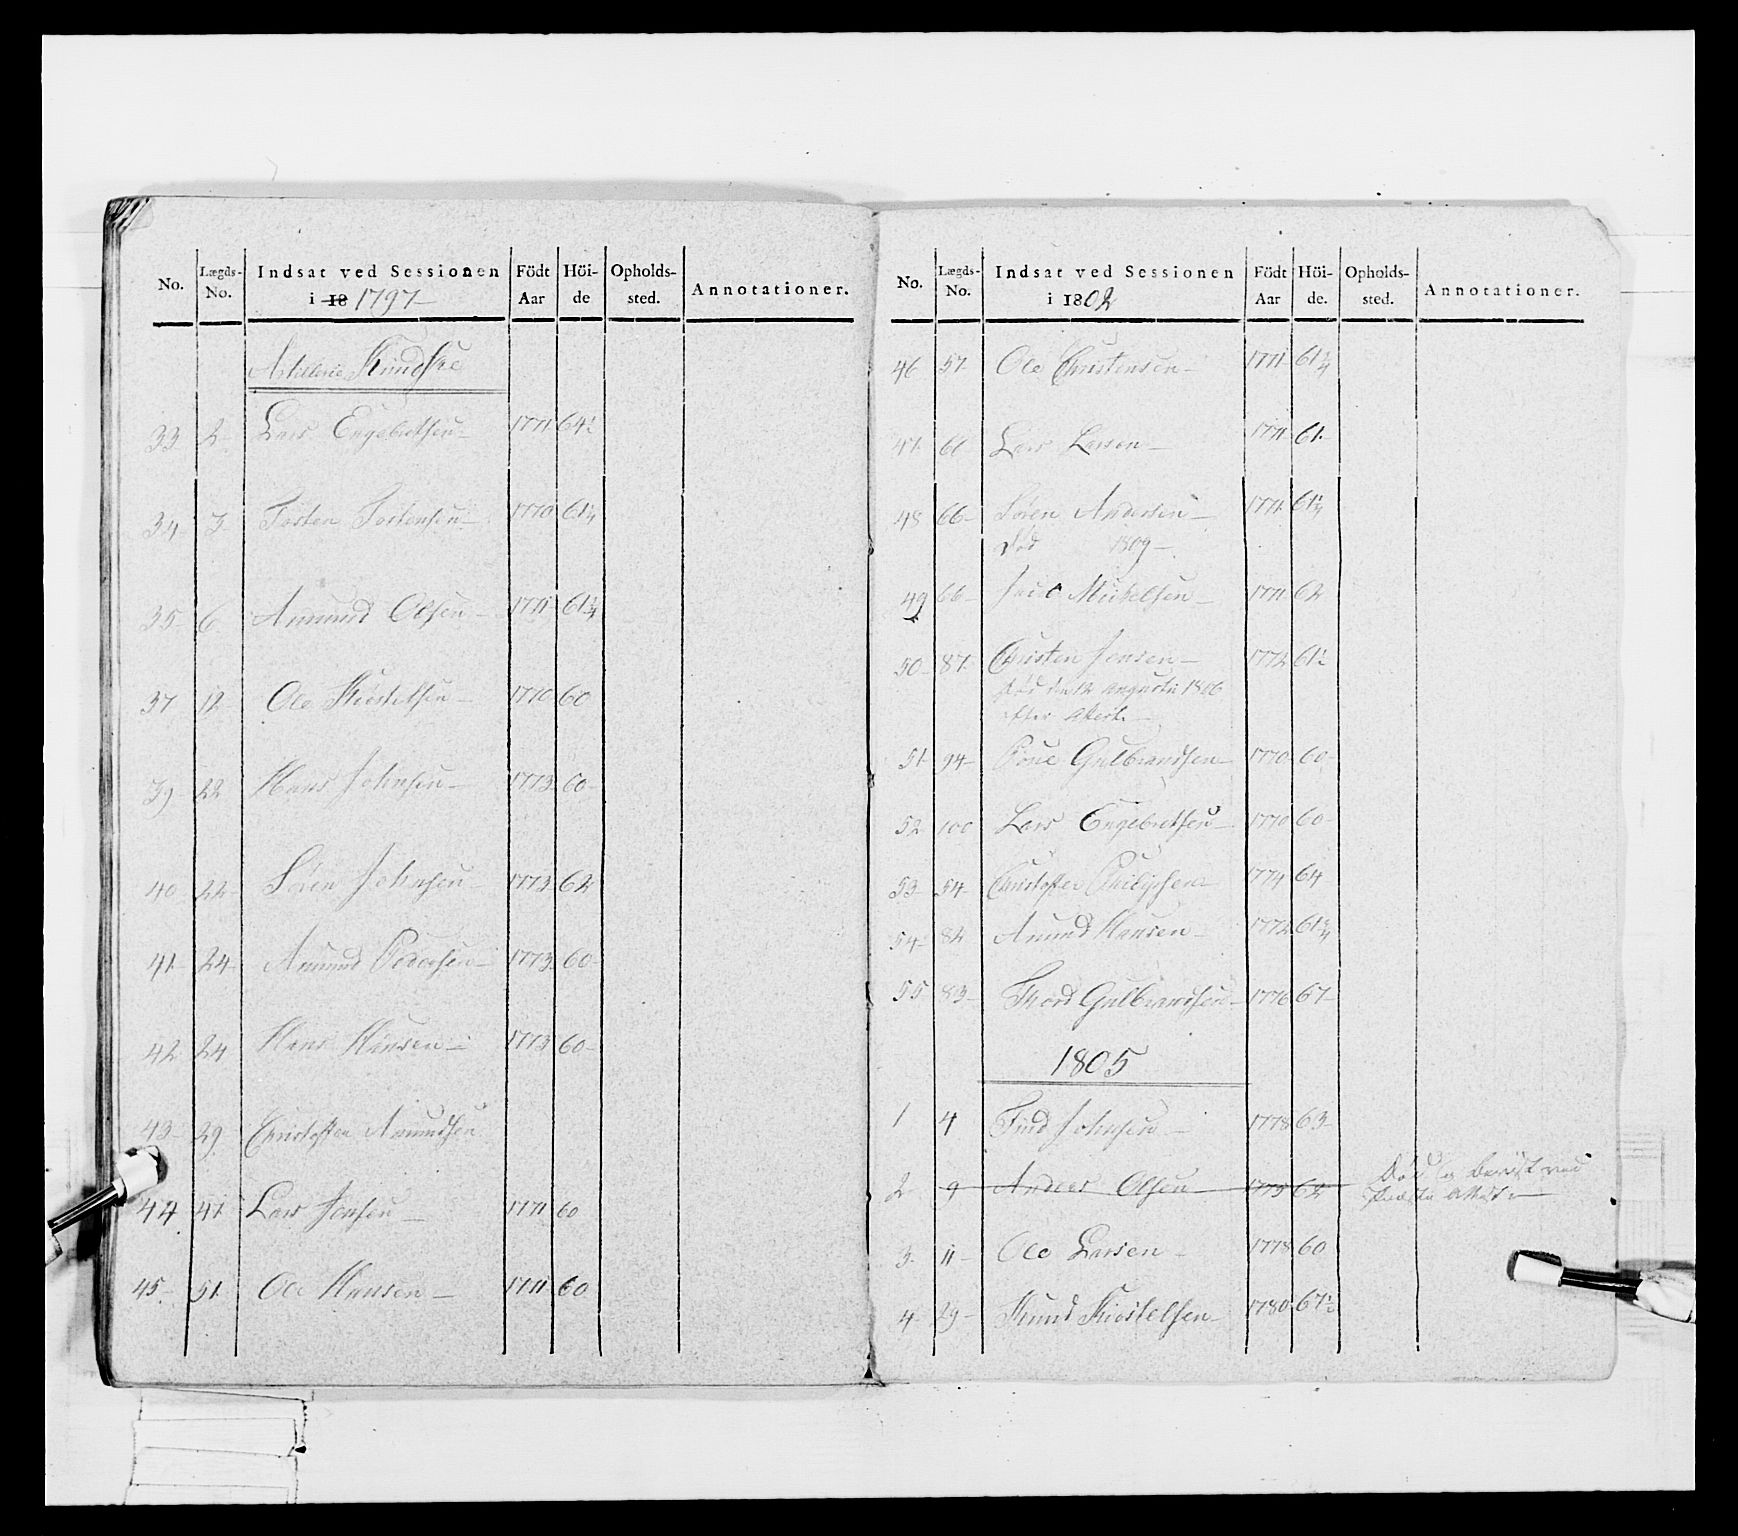 No. Lægds-No. Indsat ved Sessionen i 18 1797 Födt Aar Höi-de Opholds-sted. Annotationer.
Artillerie Kundske
33 2 Lars Engebretsen 1771 64½
34 3 Tosten Tostensen 1770 61¼
35 6 Amund Olsen 1771 61¾
37 12 Ole Kiostelsen 1770 60
39 22 Hans Johnsen 1773 60
40 22 Sören Johnsen 1773 62
41 24 Amund Pedersen 1773 60
42 24 Hans Hansen 1773 60
43 29 Christoffer Amundsen
44 47 Lars Jensen 1771 60
45 51 Ole Hansen 1771 60
No. Lægds-No. Indsat ved Sessionen i 1802 Födt Aar Höi-de. Opholds-sted. Annotationer.
46 57 Ole Christensen 1771 61¾
47 60 Lars Larsen 1771 61
48 66 Sören Andersen 1771 61¼
Död 1809
49 66 Mickelsen 1771 62
50 87 Christen Jensen 1772 61½
död den 12 Augustii 1806
efter Attest
51 94 Gulbrandsen 1770 60
52 100 Lars Engebretsen 1770 60
53 54 Christoffer Philipsen 1774 64
54 82 Amund Hansen 1772 61¾
55 83 Thord Gulbrandsen 1776 67
1805
1 4 Find Johnsen 1778 63
2 9 Anders Olsen 1775 62 Död og beviist ved
Attest
3 11 Ole Larsen 1778 60
4 29 Knud Kiostelsen 1780 67½